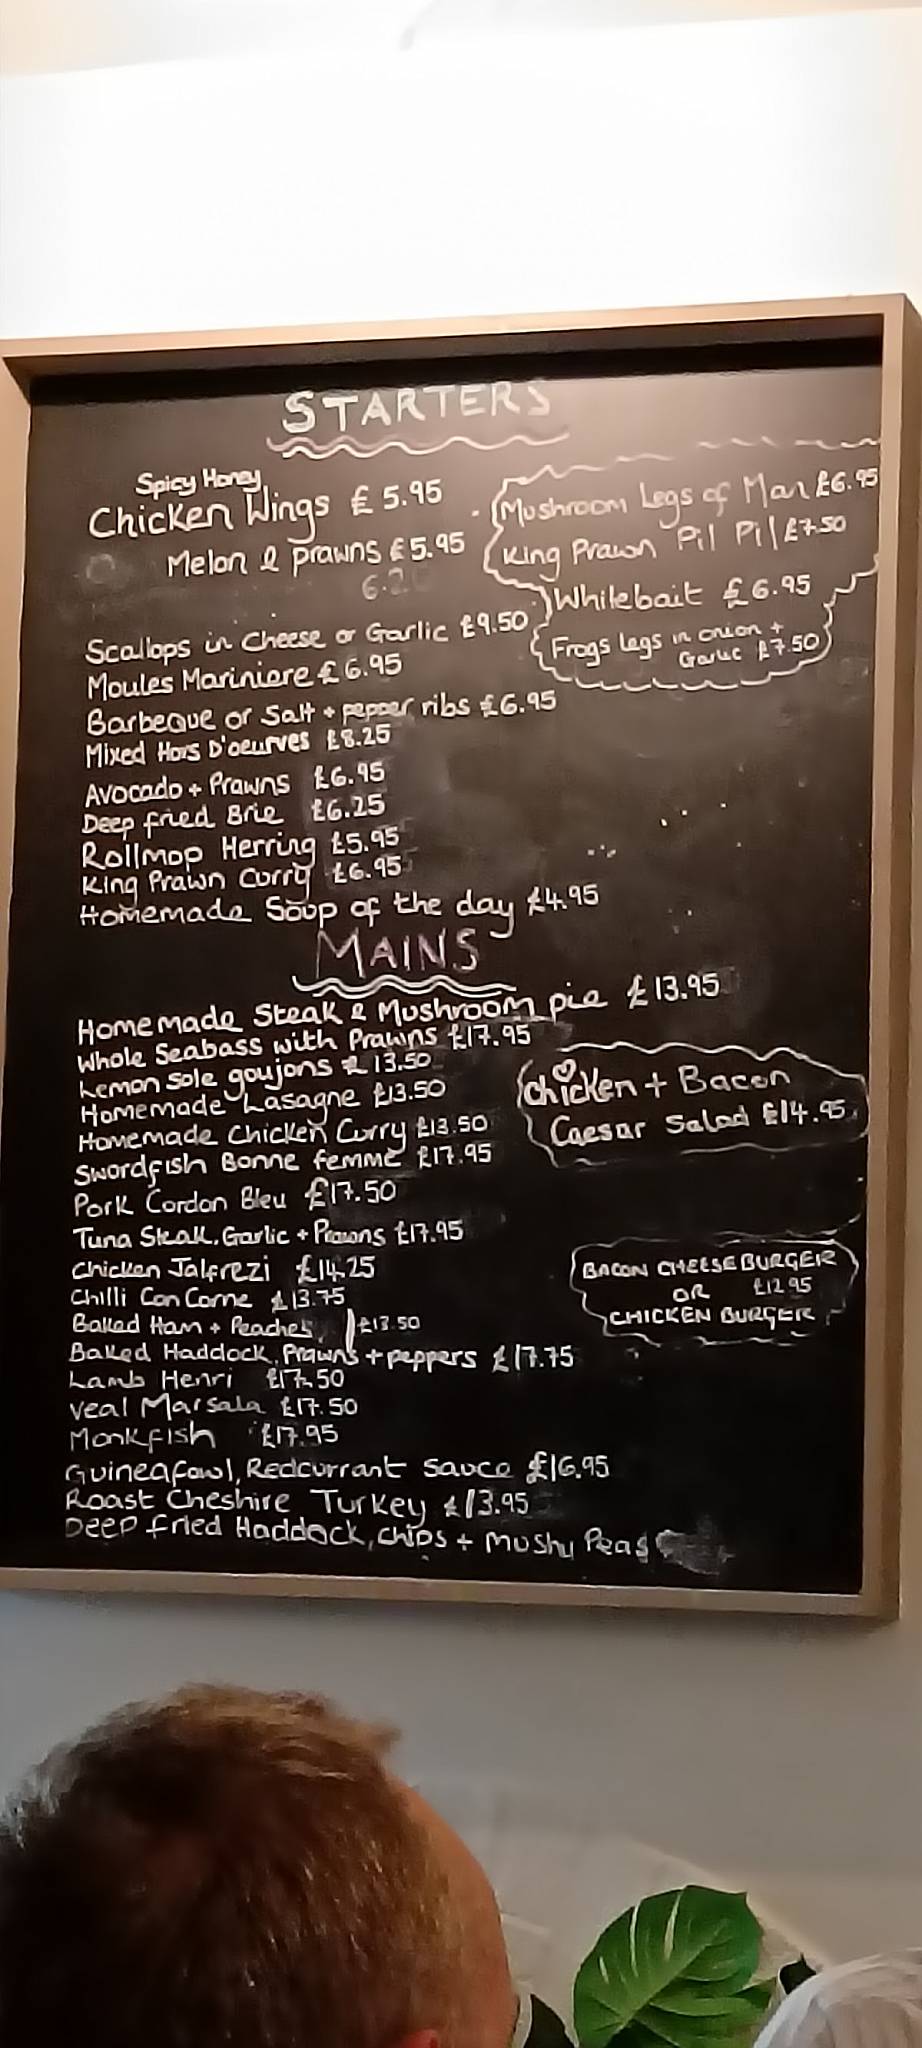 STARTERS
Spicy Honey
Chicken Wings £5.95
Melon & prawns £5.95
Scallops in Cheese or Garlic £9.50
Moules Mariniere £6.95
Barbeque or Salt + pepper ribs £6.95
Mixed Hors D'oeurves £8.25
Avocado + Prawns £6.95
Deep fried Brie £6.25
Rollmop Herring £5.95
King Prawn Curry £6.95
Homemade Soup of the day £4.95
Mushroom Legs of Man £6.95
King Prawn Pil Pil £7.50
Whitebait £6.95
Frogs legs in onion +
Garlic £7.50
MAINS
Homemade Steak & Mushroom pie £13.95
Whole Seabass with Prawns £17.95
Lemon Sole goujons £13.50
Homemade Lasagne £13.50
Homemade Chicken Curry £13.50
Swordfish Bonne femme £17.95
Pork Cordon Bleu £17.50
Tuna Steak, Garlic + Prawns £17.95
Chicken Jalfrezi £14.25
Chilli Con Corne £13.75
Baked Ham + Peaches £13.50
Baked Haddock, Prawns + peppers £17.75
Lamb Henri £17.50
Veal Marsala £17.50
Monkfish £17.95
Guineafowl, Redcurrant sauce £16.95
Roast Cheshire Turkey £13.95
Deep fried Haddock, chips + Mushy Peas
Chicken + Bacon
Caesar Salad £14.95
BACON CHEESEBURGER
OR £12.95
CHICKEN BURGER